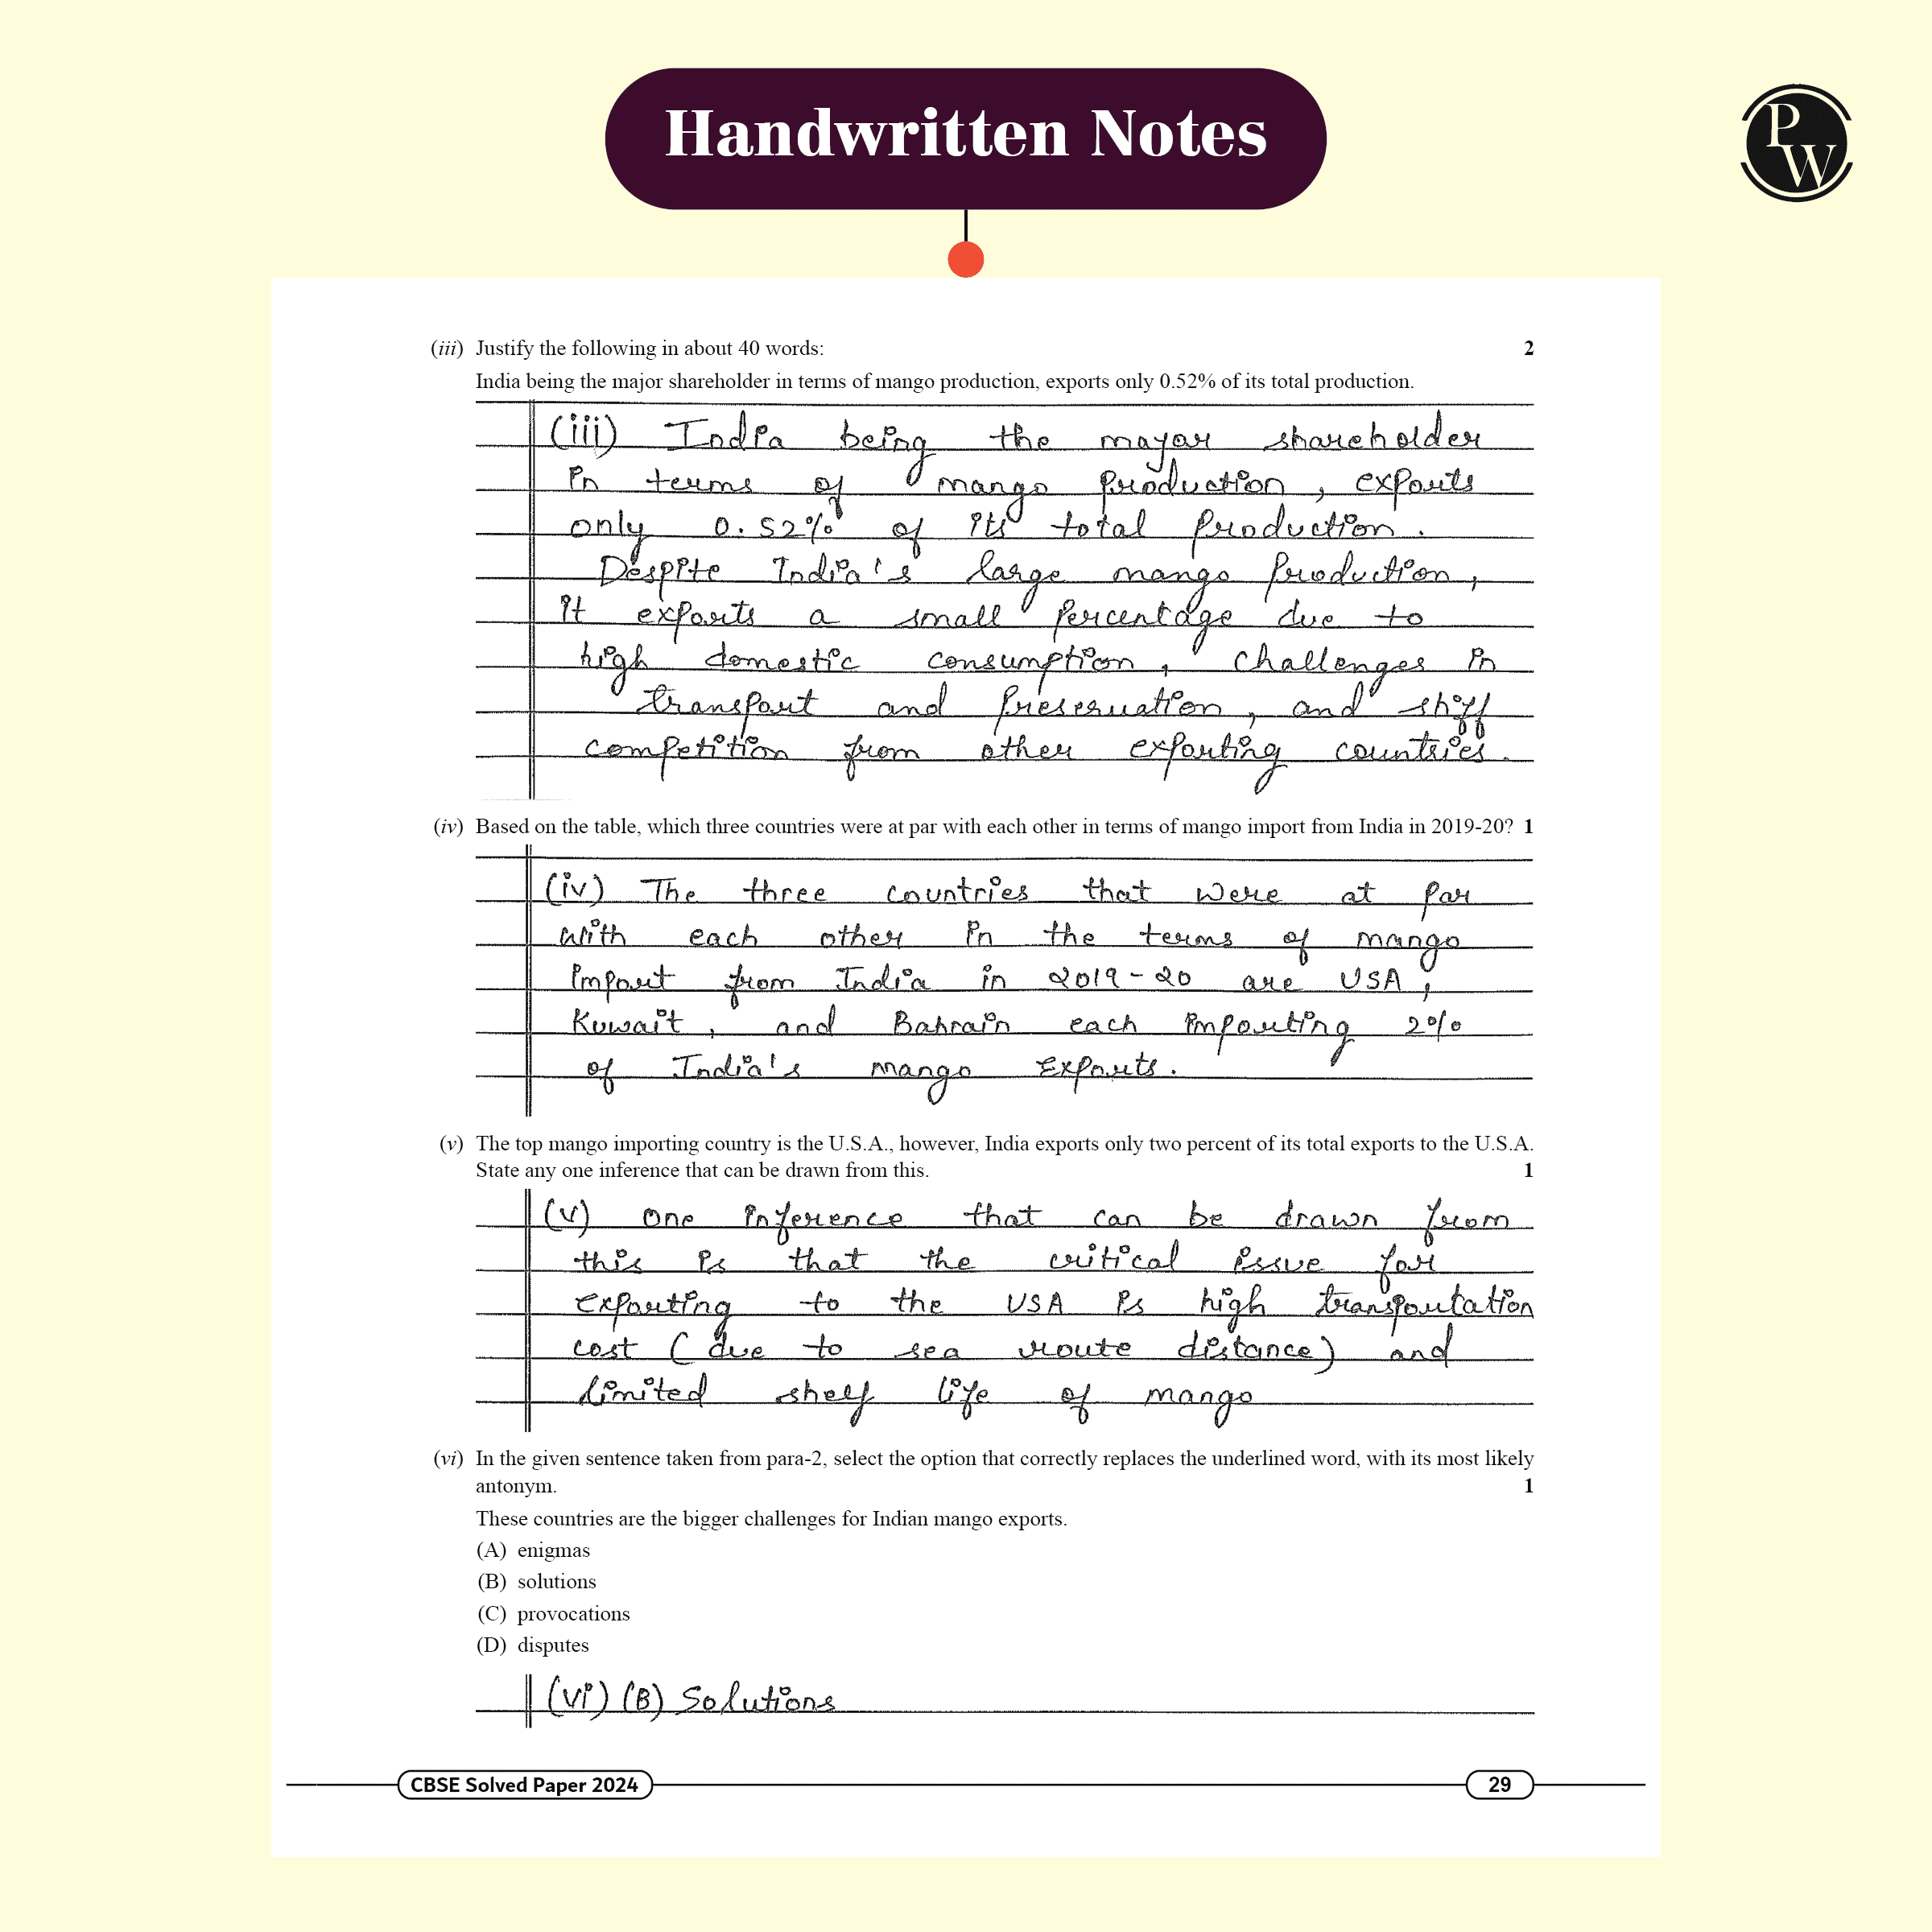 Handwritten Notes
PW
(iii) Justify the following in about 40 words: 2
India being the major shareholder in terms of mango production, exports only 0.52% of its total production.
(iii) India being the mayor shareholder
in terms of mango production, exports
only 0.52% of its total production.
Despite India's large mango production,
it exports a small percentage due to
high domestic consumption, challenges in
transport and preservation, and shiff
competition from other exporting countries.
(iv) Based on the table, which three countries were at par with each other in terms of mango import from India in 2019-20? 1
(iv) The three countries that were at par
with each other in the terms of mango
import from India in 2019-20 are USA,
Kuwait, and Bahrain each importing 2%
of India's mango Exports.
(v) The top mango importing country is the U.S.A., however, India exports only two percent of its total exports to the U.S.A.
State any one inference that can be drawn from this. 1
(v) One inference that can be drawn from
this is that the critical issue for
exporting to the USA is high transportation
cost (due to sea route distance) and
limited shelf life of mango
(vi) In the given sentence taken from para-2, select the option that correctly replaces the underlined word, with its most likely
antonym. 1
These countries are the bigger challenges for Indian mango exports.
(A) enigmas
(B) solutions
(C) provocations
(D) disputes
(vi) (B) Solutions
CBSE Solved Paper 2024 29